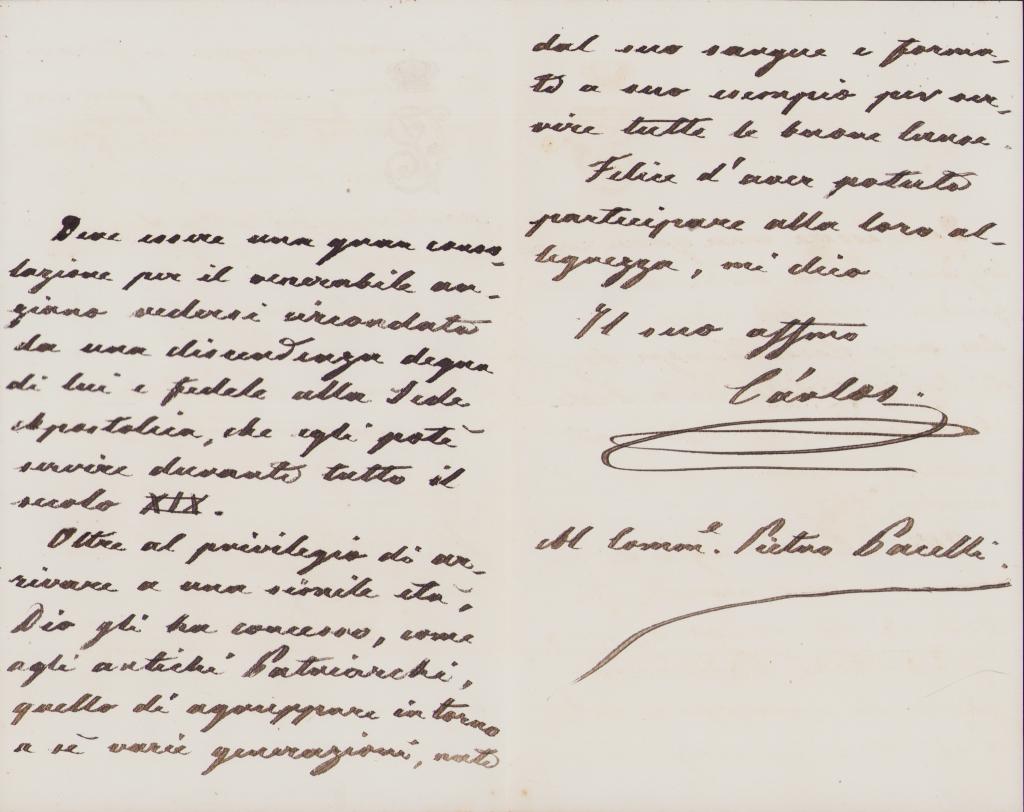 Deve essere una gran conso-
lazione per il venerabile an-
ziano vedersi circondato
da una discendenza degna
di lui e fedele alla Sede
Apostolica, che egli potè
servire durante tutto il
secolo XIX.
Oltre al privilegio di ar-
rivare a una simile età,
Dio gli ha concesso, come
agli antichi Patriarchi,
quello di aggruppare intorno
a sè varie generazioni, nate
dal suo sangue e forma-
te a suo esempio per ser-
vire tutte le buone cause.
Felice d'aver potuto
participare alla loro al-
legrezza, mi dico
Il suo affmo
Cárlos.
Al Comme. Pietro Pacelli.